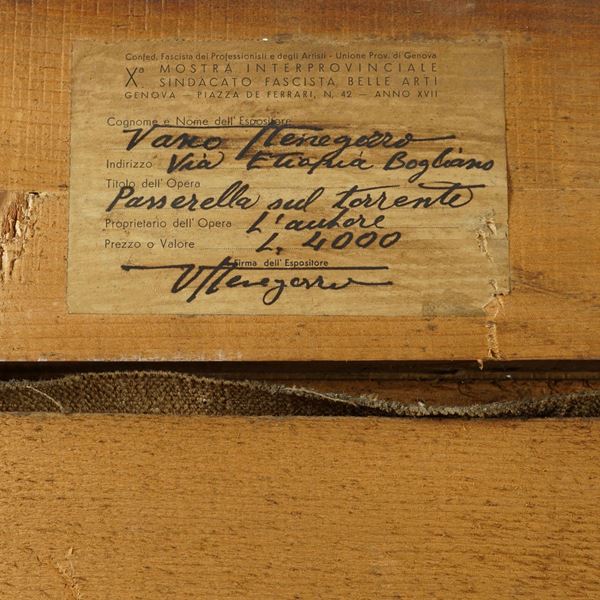 Confed. Fascista dei Professionisti e degli Artisti - Unione Prov. di Genova
Xª MOSTRA INTERPROVINCIALE
SINDACATO FASCISTA BELLE ARTI
GENOVA — PIAZZA DE FERRARI, N. 42 — ANNO XVII
Cognome e Nome dell'Espositore
Vano Menegorro
Indirizzo Via Etiapia Bogliano
Titolo dell'Opera
Passerella sul torrente
Proprietario dell'Opera L'autore
Prezzo o Valore L. 4000
Firma dell'Espositore
VMenegorro